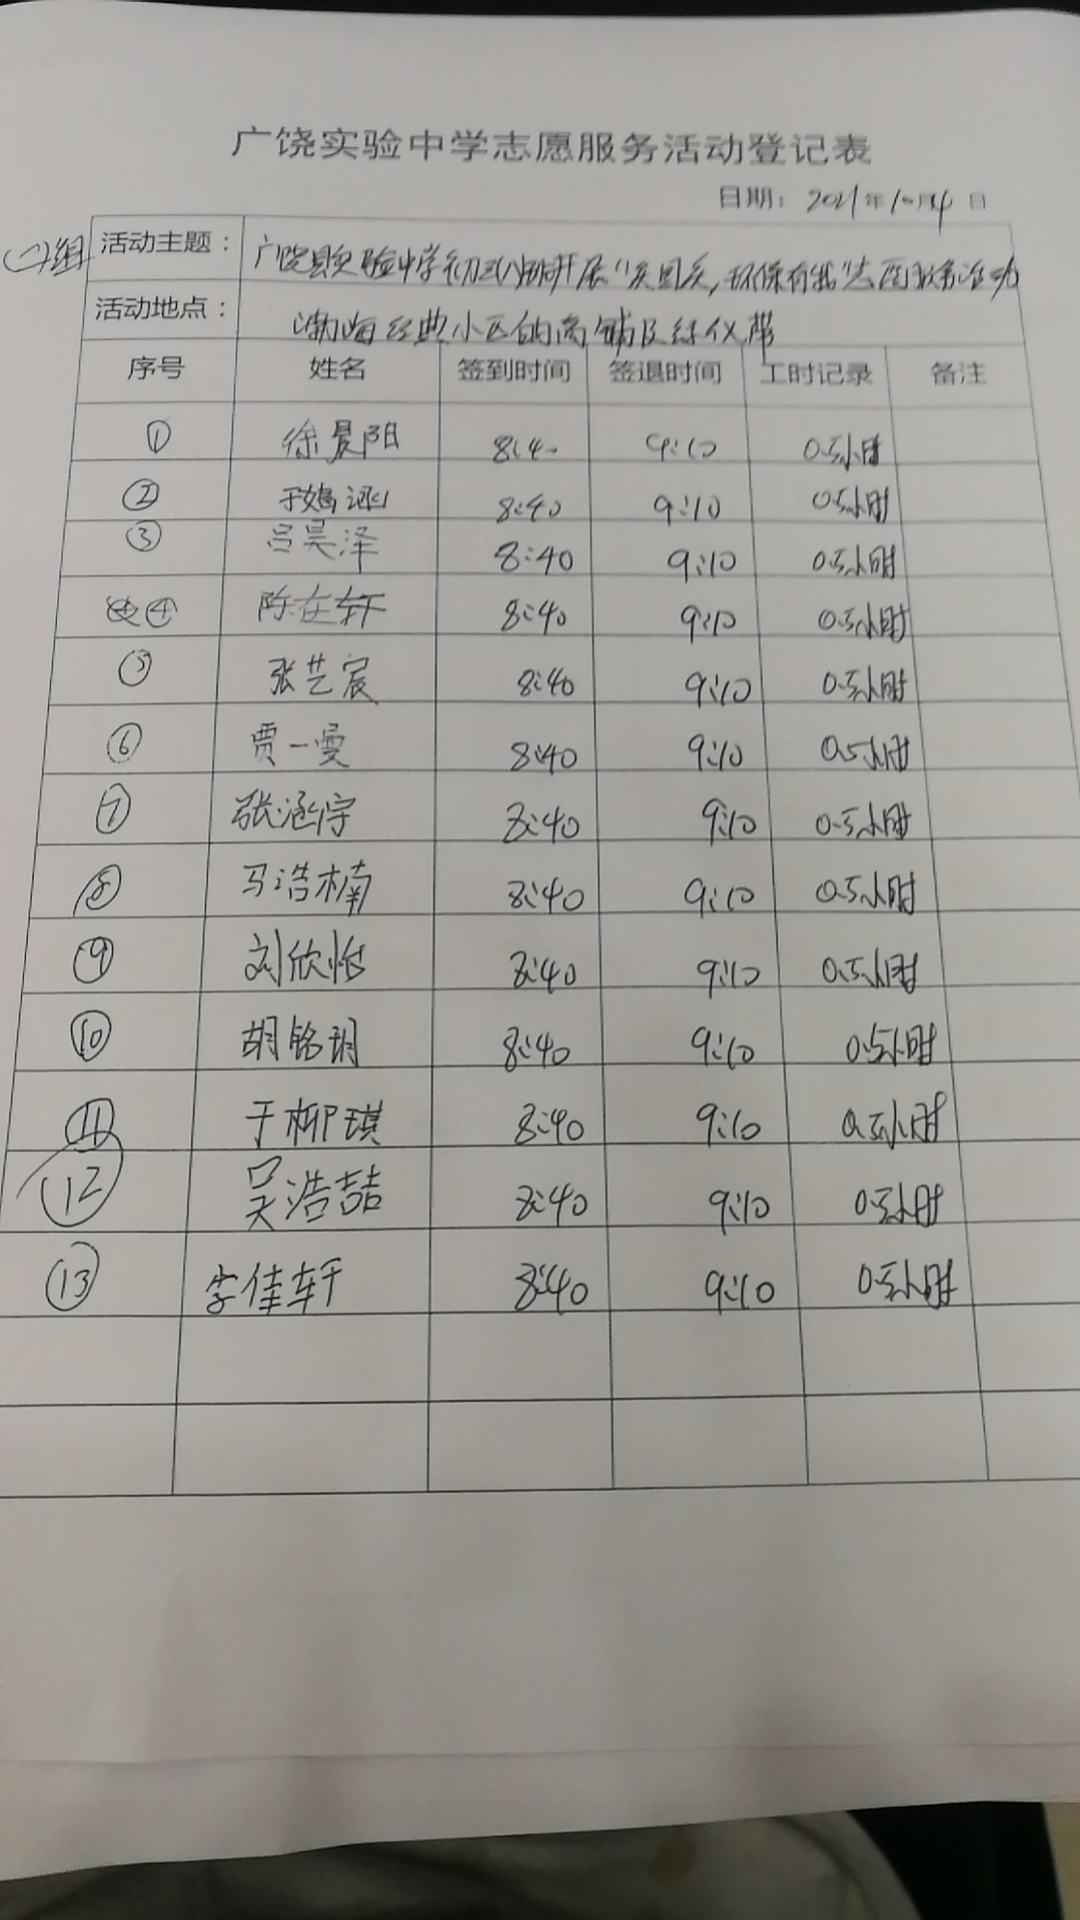 广饶实验中学志愿服务活动登记表
日期：2021年10月4日
(二)组
活动主题：广饶县实验中学初三 开展"庆国庆,环保有我"志愿服务活动
活动地点：渤海经典小区的商铺及绿化带
序号 姓名 签到时间 签退时间 工时记录 备注
① 徐晨阳 8:40 9:10 0.5小时
② 于嫣涵 8:40 9:10 0.5小时
③ 吕昊泽 8:40 9:10 0.5小时
④ 陈在轩 8:40 9:10 0.5小时
⑤ 张艺宸 8:40 9:10 0.5小时
⑥ 贾一曼 8:40 9:10 0.5小时
⑦ 张涵宇 8:40 9:10 0.5小时
⑧ 马浩楠 8:40 9:10 0.5小时
⑨ 刘欣怡 8:40 9:10 0.5小时
⑩ 胡铭玥 8:40 9:10 0.5小时
⑪ 于柳琪 8:40 9:10 0.5小时
⑫ 吴浩喆 8:40 9:10 0.5小时
⑬ 李佳轩 8:40 9:10 0.5小时